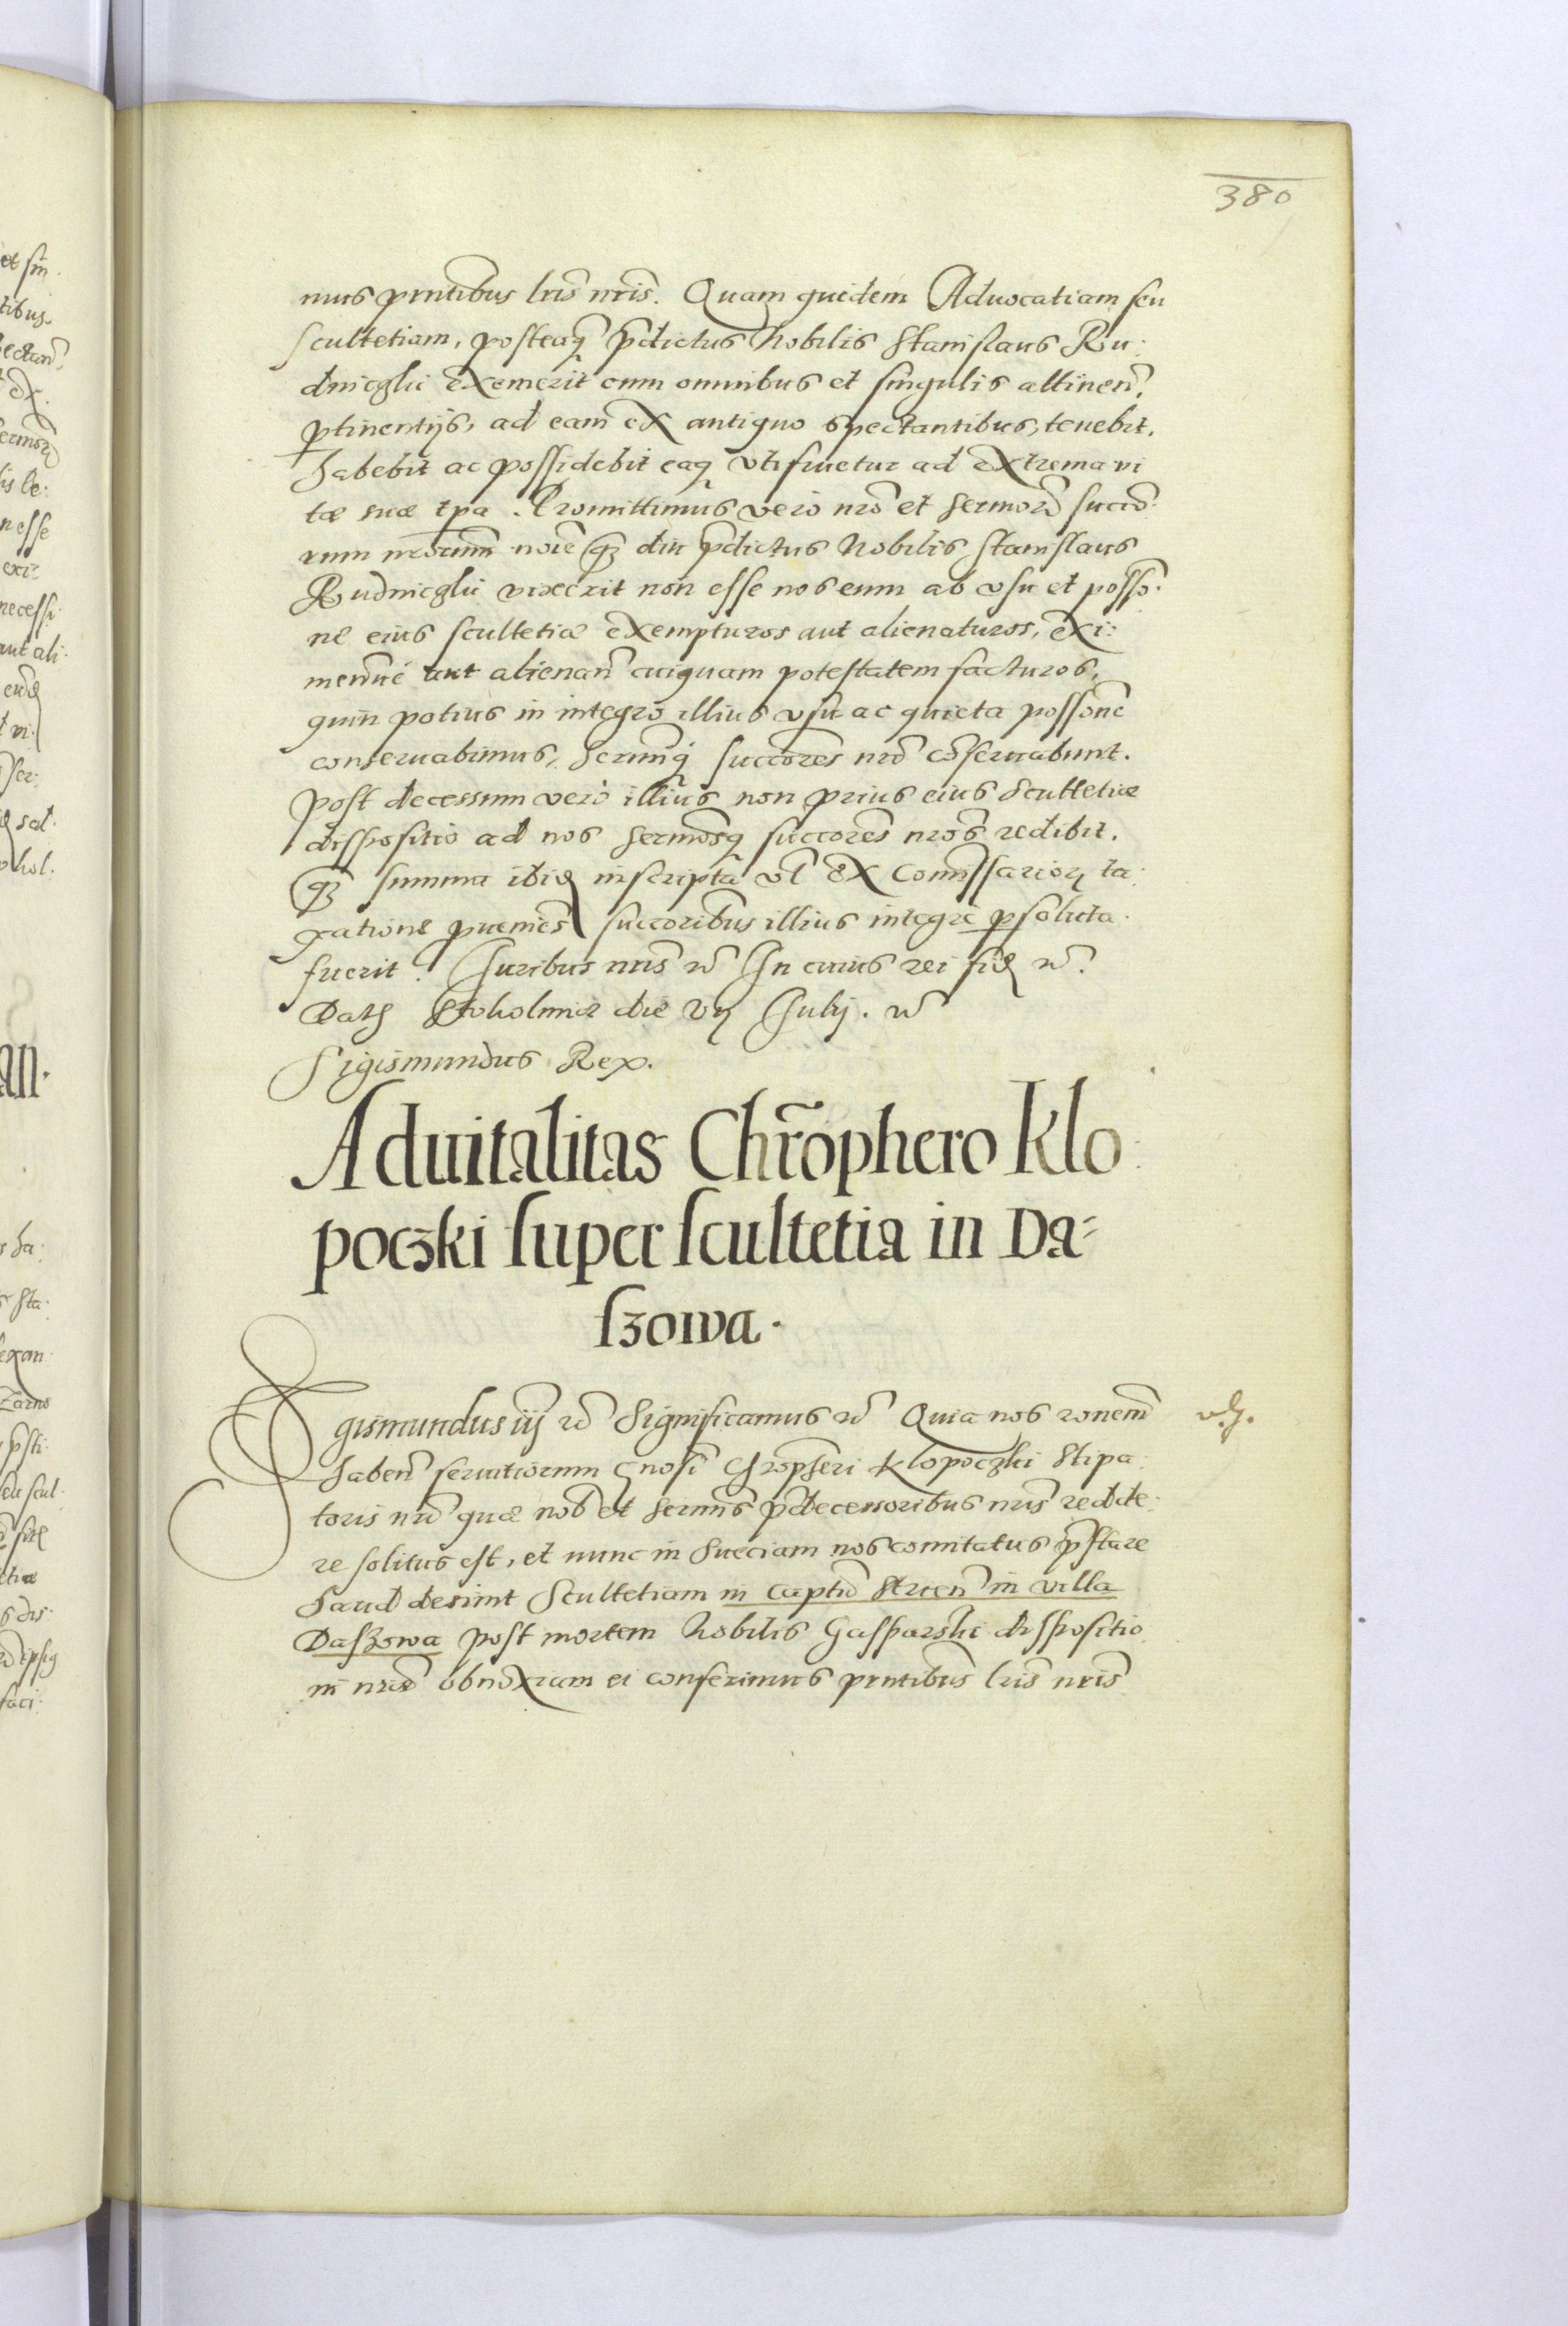 380
mus pntibus lris nris. Quam quidem Aduocatiam seu
scultetiam, posteaq pdictus Nobilis Stanislaus Ru:
dniczki exemerit cum omnibus et singulis attinen,
ptinentijs, ad eam ex antiquo spectantibus, tenebit,
habebit ac possidebit eaq vti fruetur ad extrema vi
tæ suæ tpa. Promittimus vero nro et sermor succo
rum nrorum noie qz diu pdictus Nobilis Stanislaus
Rudniczki vixerit non esse nos eum ab vsu et posso.
ne eius scultetiæ exempturos aut alienaturos, exi:
menue aut alienan cuiquam potestatem facturos,
quin potius in integro illius vsu ac quieta possone
conseruabimus, sermiq succores nri coseruabunt.
Post decessum vero illius non prius eius scultetiæ
dispositio ad nos sermosq succores nros redibit,
qz summa ibid inscripta vl ex Comissarior ta:
xatione pueniens succoribus illius integre psoluta
fuerit. Juribus nris rc In cuius rei fid rc.
Dat Stokolmiæ die vij Julij. rc
Sigismundus Rex.
Aduitalitas Chrophero Klo
poczki super scultetia in Da=
szowa.
Sigismundus iij rc Significamus rc Quia nos ronem
haben seruitiorum gnosi Chropheri Klopoczki Stipa
toris nri quæ nob et sermis pdecessoribus nris redde:
re solitus est, et nunc in Sueciam nos comitatus pstare
haud desinit Scultetiam in captu Stricen in villa
Daszowa post mortem Nobilis Gasparski dispositio
ni nræ obnoxiam ei conferimus pntibus lris nris